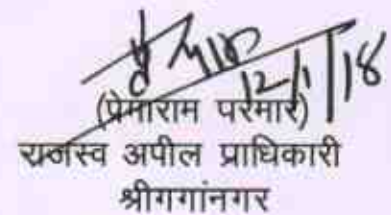 12/1/18
(प्रेमाराम परमार)
राजस्व अपील प्राधिकारी
श्रीगगांनगर